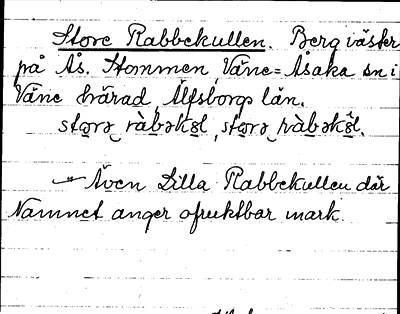 Store Rabbekullen. Berg väster
på Ås. Stommen, Väne=Åsaka sn i
Väne härad, Älfsborgs län.
Även Lilla Rabbekullen där
Namnet anger ofruktbar mark.